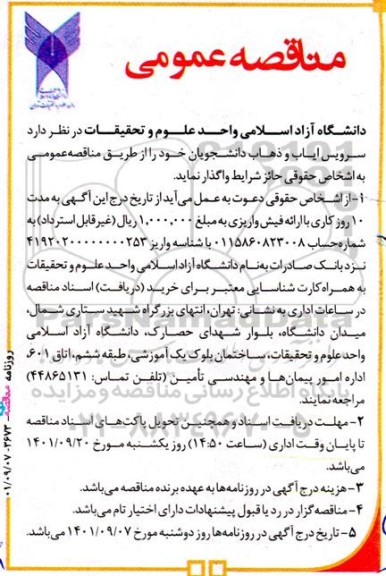 مناقصه عمومی
دانشگاه آزاد اسلامی واحد علوم و تحقیقات در نظر دارد
سرویس ایاب و ذهاب دانشجویان خود را از طریق مناقصه عمومی
به اشخاص حقوقی حائز شرایط واگذار نماید.
۱- از اشخاص حقوقی دعوت به عمل می‌آید از تاریخ درج این آگهی به مدت
۱۰ روز کاری با ارائه فیش واریزی به مبلغ ۱,۰۰۰,۰۰۰ ریال (غیر قابل استرداد) به
شماره حساب ۰۱۱۵۸۶۰۸۲۳۰۰۸ با شناسه واریز
نزد بانک صادرات به نام دانشگاه آزاد اسلامی واحد علوم و تحقیقات
به همراه کارت شناسایی معتبر برای خرید (دریافت) اسناد مناقصه
در ساعات اداری به نشانی: تهران، انتهای بزرگراه شهید ستاری شمال،
میدان دانشگاه، بلوار شهدای حصارک، دانشگاه آزاد اسلامی
واحد علوم و تحقیقات، ساختمان بلوک یک آموزشی، طبقه ششم، اتاق ۶۰۱،
اداره امور پیمان‌ها و مهندسی تأمین (تلفن تماس: ۴۴۸۶۵۱۳۱)
مراجعه نمایند.
۲- مهلت دریافت اسناد و همچنین تحویل پاکت‌های اسناد مناقصه
تا پایان وقت اداری (ساعت ۱۴:۵۰) روز یکشنبه مورخ ۱۴۰۱/۰۹/۲۰
می‌باشد.
۳- هزینه درج آگهی در روزنامه‌ها به عهده برنده مناقصه می‌باشد.
۴- مناقصه‌گزار در رد یا قبول پیشنهادات دارای اختیار تام می‌باشد.
۵- تاریخ درج آگهی در روزنامه‌ها روز دوشنبه مورخ ۱۴۰۱/۰۹/۰۷ می‌باشد.
روزنامه مناقصه ۳۶۷۳ - ۰۱/۰۹/۰۷